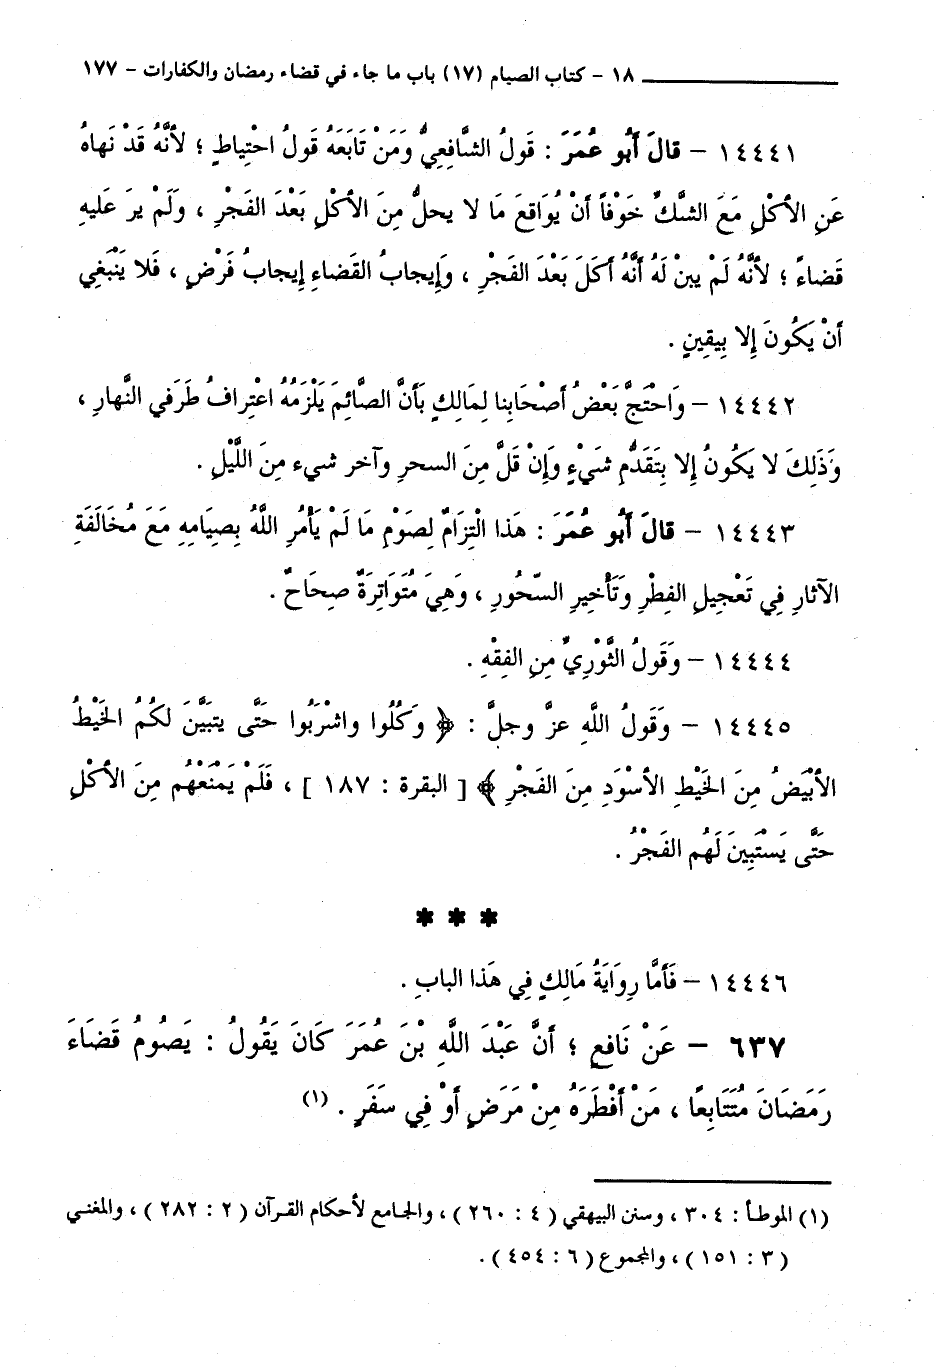 ١٨ - كتاب الصيام (١٧) باب ما جاء في قضاء رمضان والكفارات - ١٧٧
١٤٤٤١ - قالَ أَبُو عُمَرَ : قَولُ الشَّافِعِيُّ وَمَنْ تَابَعَهُ قَولُ احْتِياطٍ ؛ لأنَّهُ قَدْ نَهاهُ
عَنِ الأكْلِ مَعَ الشكِّ خَوْفاً أنْ يُوَاقعَ مَا لا يحلُّ مِنَ الأكْلِ بَعْدَ الفَجْرِ ، وَلَمْ يرَ عَليهِ
قَضاءً ؛ لأنَّهُ لَمْ يبنْ لَهُ أنَّهُ أكَلَ بَعْدَ الفَجْرِ ، وَإيجابُ القَضاءِ إيجابُ فَرْضٍ ، فَلا يَنْبَغِي
أنْ يَكُونَ إلا بِيقينٍ .
١٤٤٤٢ - وَاحْتَجَّ بَعْضُ أصْحَابِنا لِمَالِكٍ بَأنَّ الصَّائِمَ يَلْزَمُهُ اعْتِرافُ طَرَفي النَّهارِ ،
وَذَلِكَ لا يَكُونُ إلا بِتَقَدُّمِ شَيْءٍ وَإنْ قَلَّ مِنَ السحرِ وآخر شيء مِنَ اللَّيْلِ .
١٤٤٤٣ - قالَ أَبُو عُمَرَ : هَذا الْتِزَامٌ لِصَوْمِ مَا لَمْ يَأمُرِ اللَّهُ بِصِيَامِهِ مَعَ مُخَالَفَةِ
الآثارِ فِي تَعْجِيلِ الفِطْرِ وَتَأخِيرِ السّحُورِ ، وَهِيَ مُتَوَاتِرَةٌ صِحَاحٌ .
١٤٤٤٤ - وَقَولُ الثَّوْرِيِّ مِنِ الفِقْهِ .
١٤٤٤٥ - وَقَولُ اللَّهِ عزَّ وجلَّ : ﴿ وَكُلُوا واشْرَبُوا حَتَّى يتبيَّنَ لكُمُ الخَيْطُ
الأبْيَضُ مِنَ الخَيْطِ الأسْوَدِ مِنَ الفَجْرِ ﴾ [ البقرة : ١٨٧ ] ، فَلَمْ يَمْنَعْهُم مِنَ الأكْلِ
حَتَّى يَسْتَبِينَ لَهُم الفَجْرُ .
* * *
١٤٤٤٦ - فَأمَّا رِوَايَةُ مَالِكٍ فِي هَذا البابِ .
٦٣٧ - عَنْ نَافِعٍ ؛ أنَّ عَبْدَ اللَّهِ بْنَ عُمَرَ كَانَ يَقُولُ : يَصُومُ قَضَاءَ
رَمَضَانَ مُتَتَابِعًا ، مَنْ أَفْطَرَهُ مِنْ مَرَضٍ أوْ فِي سَفَرٍ . (١)
(١) الموطأ : ٣٠٤ ، وسنن البيهقي ( ٤ : ٢٦٠ ) ، والجامع لأحكام القرآن ( ٢ : ٢٨٢ ) ، والمغني
( ٣ : ١٥١ ) ، والمجموع ( ٦ : ٤٥٤ ) .